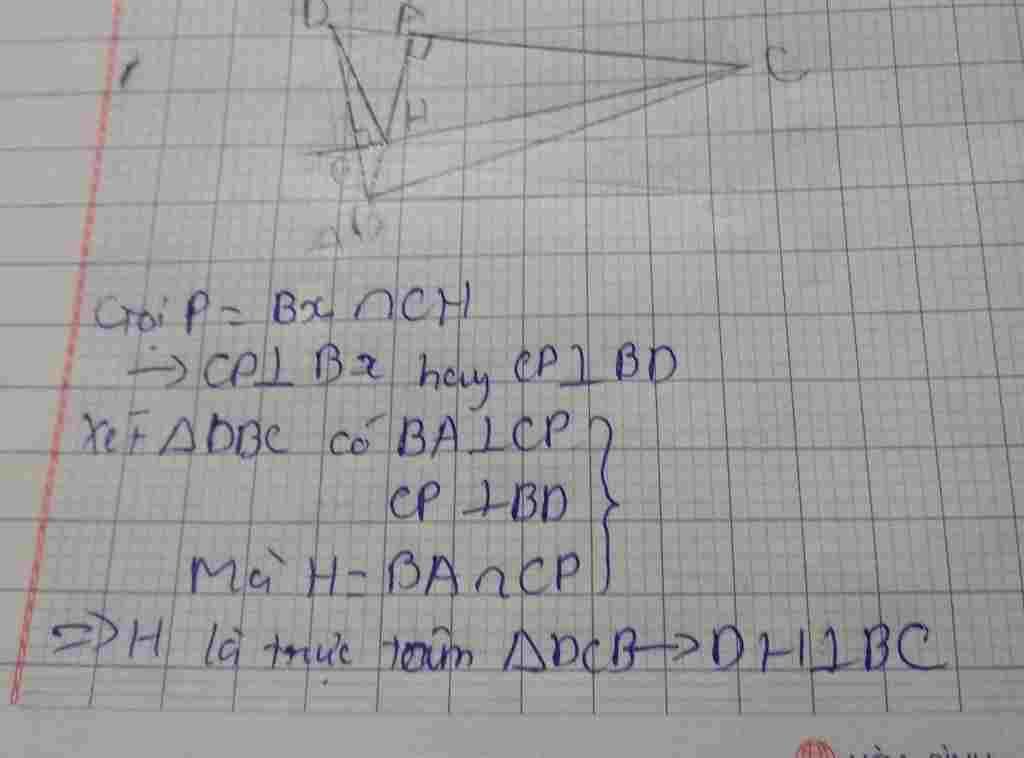 D A
C
H
Gọi P = Bx ∩ CH
→ CP ⊥ Bx hay CP ⊥ BD
Xét ΔDBC có BA ⊥ CP
CP ⊥ BD
Mà H = BA ∩ CP
⇒ H là trực tâm ΔDCB → DH ⊥ BC